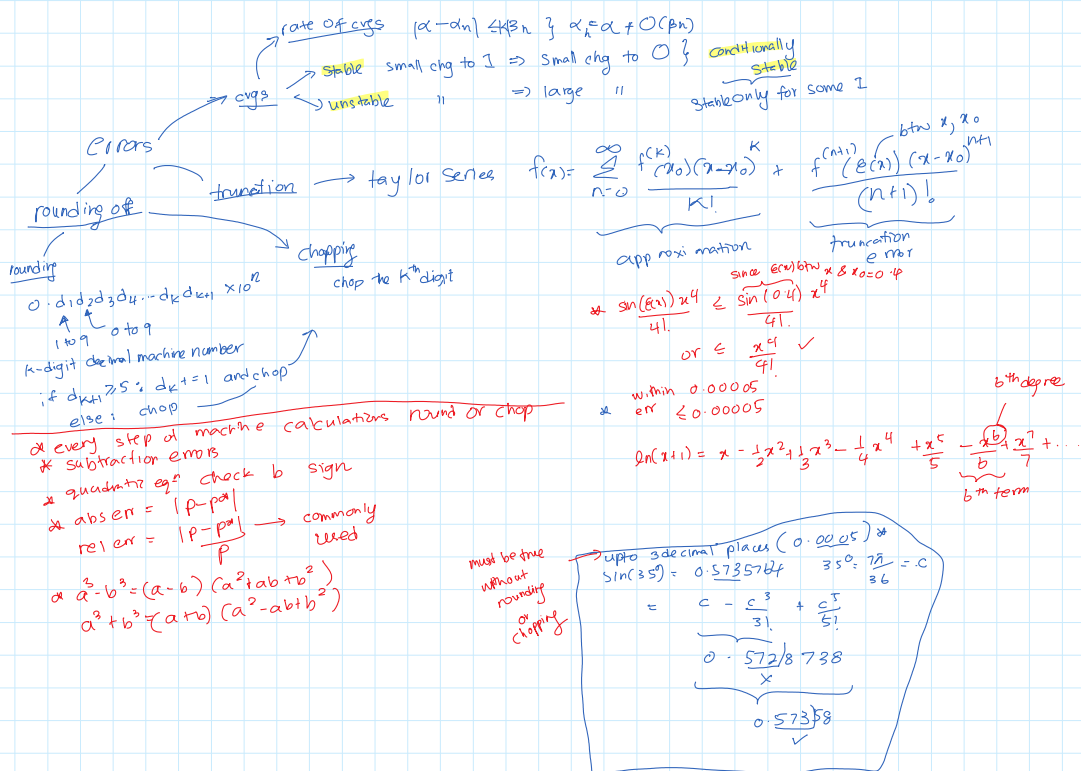 rate of cvgs |α-αn| ≤ kβn } αn = α + O(βn)
cvgs
stable small chg to I ⇒ small chg to O } conditionally stable
unstable " ⇒ large "
stable only for some I
errors
trunction → taylor series f(x)= ∞ Σ n=0 f^(k)(x0)(x-x0)^k / k! + f^(n+1)(ξ(x))(x-x0)^n+1 / (n+1)!
btw x, x0
approximation
truncation error
rounding off
rounding
0.d1d2d3d4...dkdk+1 ×10^n
1 to 9
0 to 9
k-digit decimal machine number
if dk+1 ≥5: dk+=1 and chop
else: chop
chopping
chop the kth digit
since ξ(x) btw x & x0=0.4
* sin(ξ(x))x^4 / 4! ≤ sin(0.4) x^4 / 4!
or ≤ x^4 / 4! ✓
* within 0.00005
err ≤ 0.00005
6th degree
ln(x+1) = x - 1/2 x^2 + 1/3 x^3 - 1/4 x^4 + x^5/5 - x^6/6 + x^7/7 + ...
6th term
* every step of machine calculations round or chop
* subtraction errors
* quadratic eqn check b sign
* abs err = |p-p*|
rel err = |p-p*| / p → commonly used
* a^3-b^3=(a-b)(a^2+ab+b^2)
a^3+b^3=(a+b)(a^2-ab+b^2)
must be true
without
rounding
or
chopping
upto 3decimal places (0.0005) *
sin(35°) = 0.5735764 35° = 7π/36 = c
= c - c^3/3! + c^5/5!
0.572/8738
x
0.573)58
✓